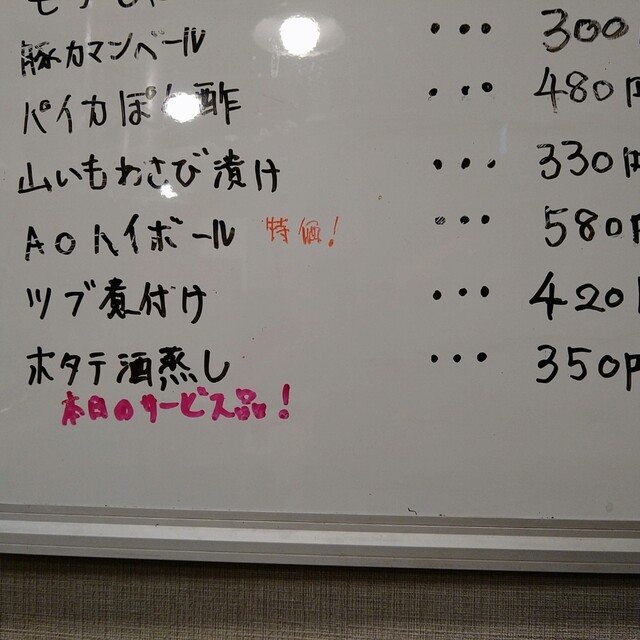 豚カマンベール ・・・ 300
パイカぽん酢 ・・・ 480円
山いもわさび漬け ・・・ 330円
Aoハイボール 特価! ・・・ 580円
ツブ煮付け ・・・ 420
ホタテ酒蒸し ・・・ 350円
本日のサービス品!